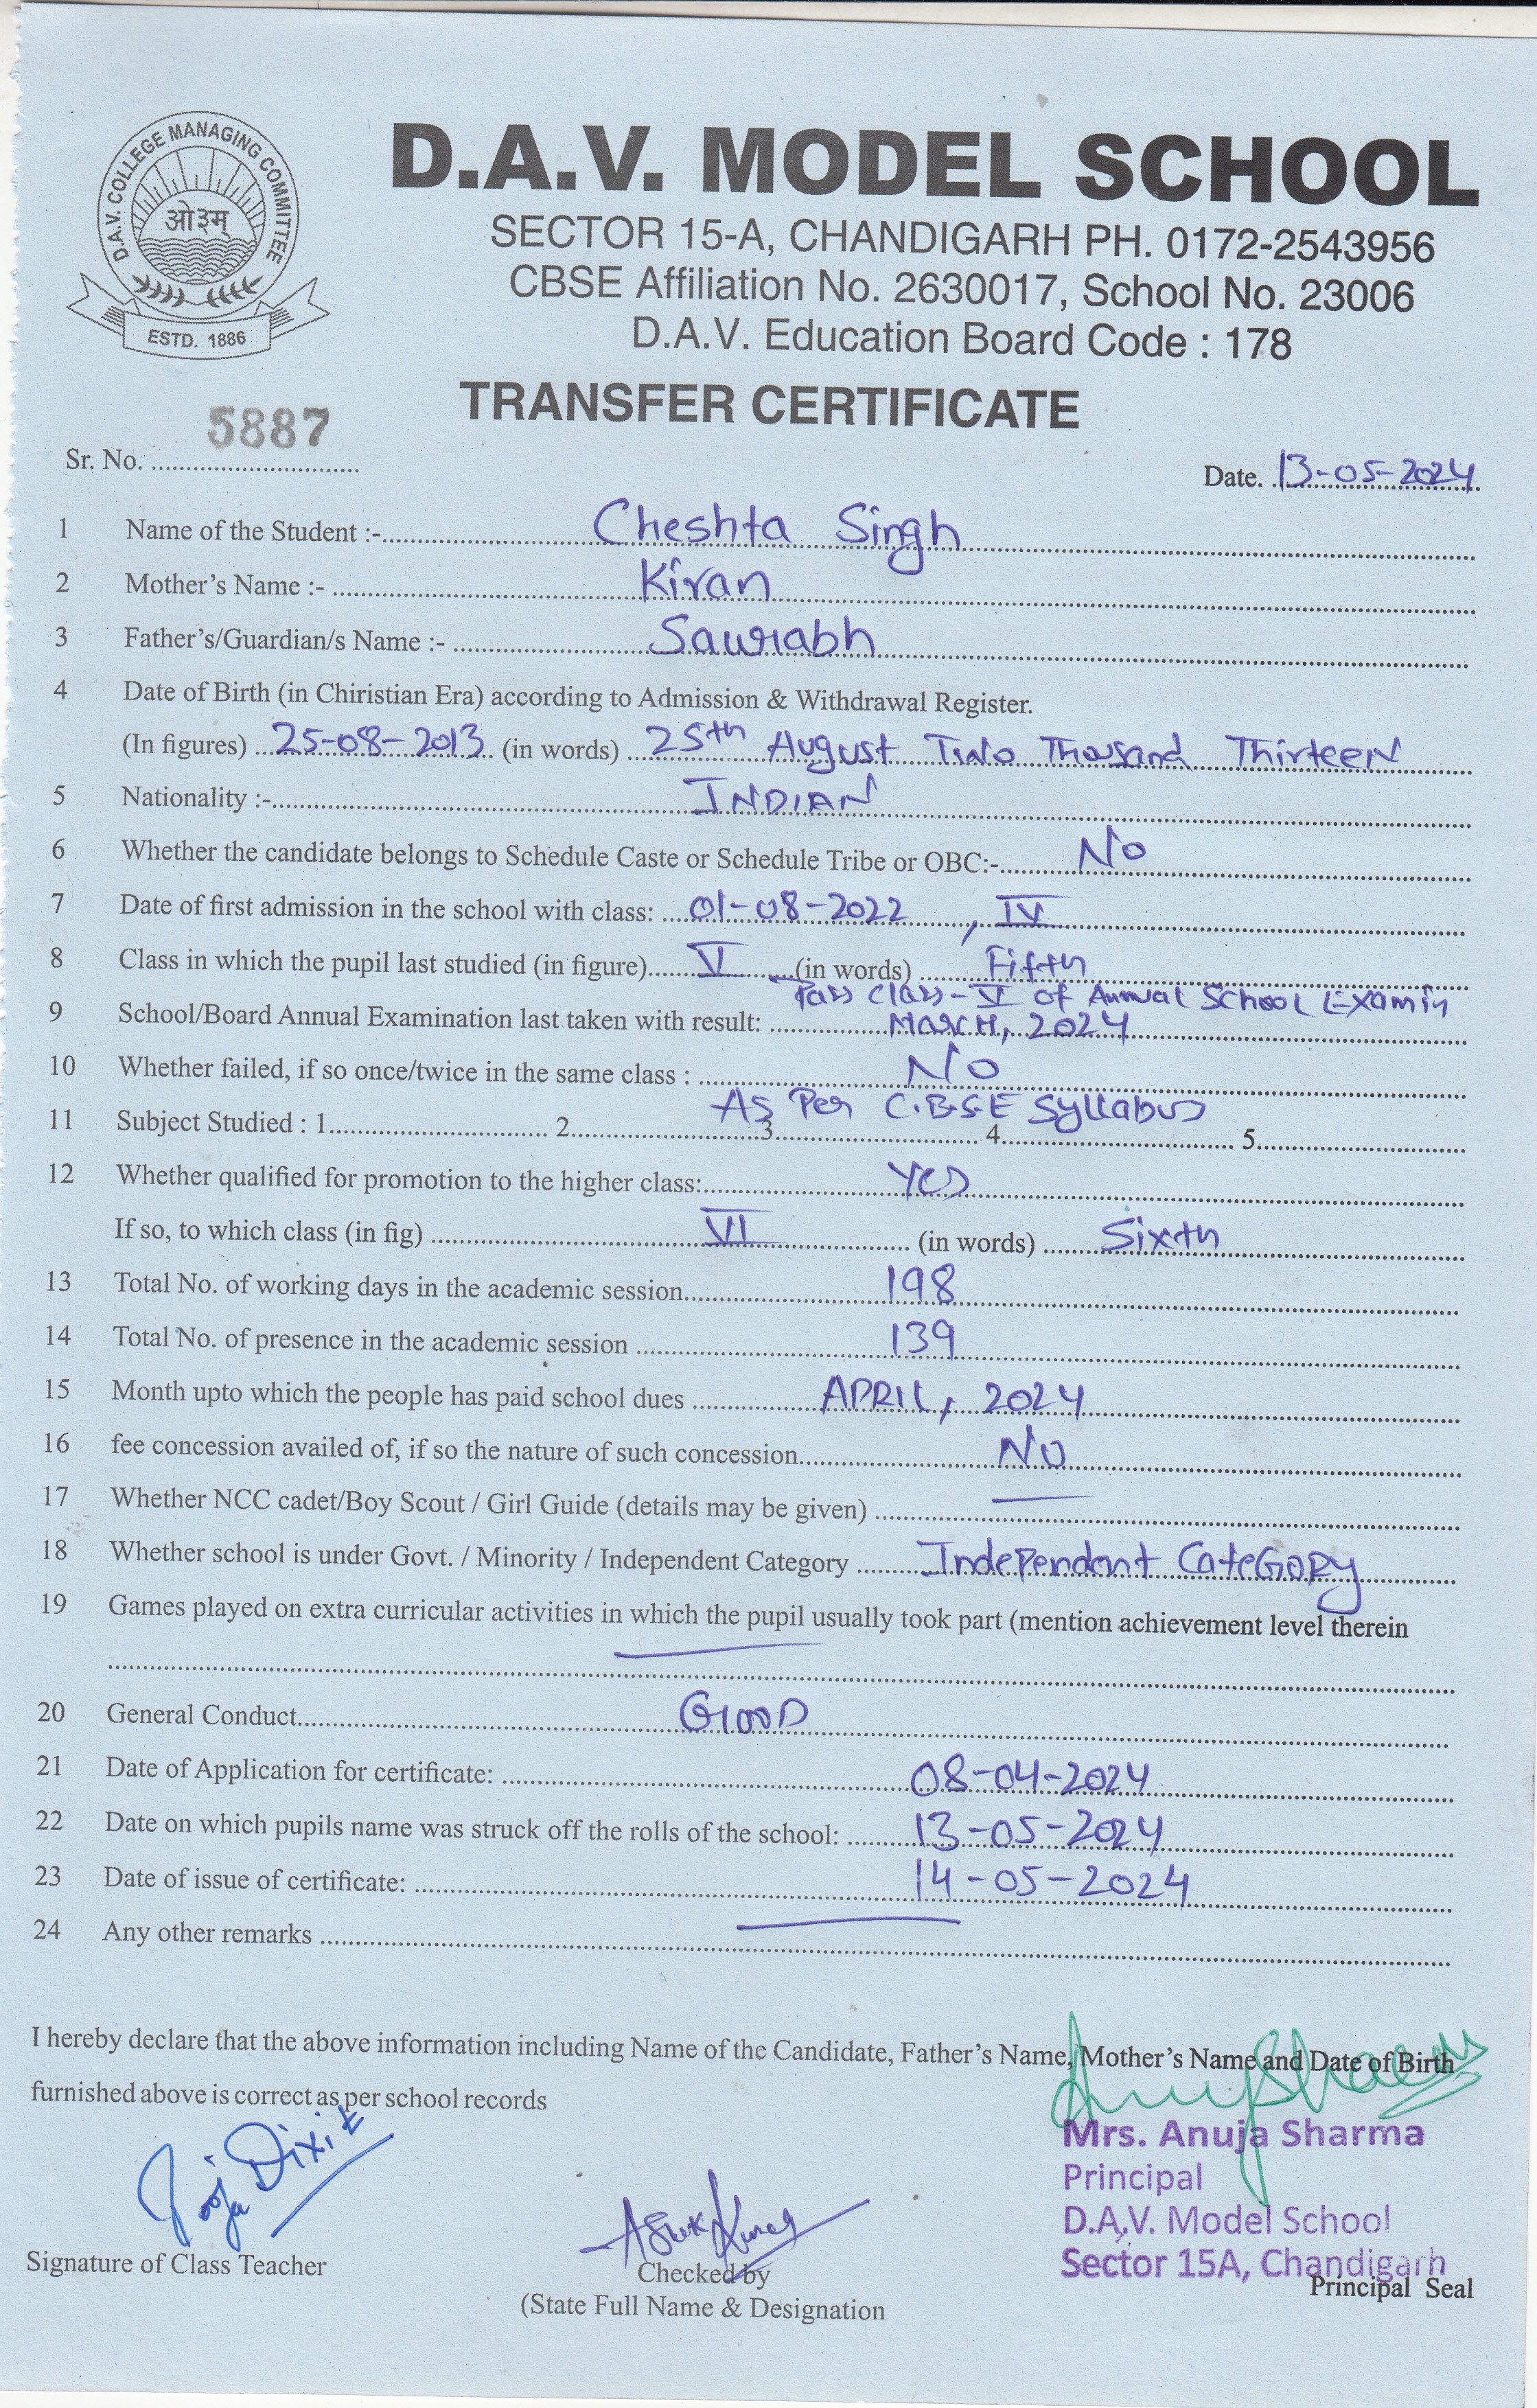 D.A.V. COLLEGE MANAGING COMMITTEE
ओ३म्
ESTD. 1886
D.A.V. MODEL SCHOOL
SECTOR 15-A, CHANDIGARH PH. 0172-2543956
CBSE Affiliation No. 2630017, School No. 23006
D.A.V. Education Board Code : 178
TRANSFER CERTIFICATE
Sr. No. 5887
Date. 13-05-2024
1 Name of the Student :- Cheshta Singh
2 Mother's Name :- Kiran
3 Father's/Guardian/s Name :- Saurabh
4 Date of Birth (in Chiristian Era) according to Admission & Withdrawal Register.
(In figures) 25-08-2013 (in words) 25th August Two Thousand Thirteen
5 Nationality :- INDIAN
6 Whether the candidate belongs to Schedule Caste or Schedule Tribe or OBC:- No
7 Date of first admission in the school with class: 01-08-2022, IV
8 Class in which the pupil last studied (in figure) V (in words) Fifth
Pass Class-V of Annual School Examin
9 School/Board Annual Examination last taken with result: MARCH, 2024
10 Whether failed, if so once/twice in the same class : No
As Per C.B.S.E Syllabus
11 Subject Studied : 1 2 3 4 5
12 Whether qualified for promotion to the higher class: Yes
If so, to which class (in fig) VI (in words) Sixth
13 Total No. of working days in the academic session 198
14 Total No. of presence in the academic session 139
15 Month upto which the people has paid school dues APRIL, 2024
16 fee concession availed of, if so the nature of such concession NO
17 Whether NCC cadet/Boy Scout / Girl Guide (details may be given) —
18 Whether school is under Govt. / Minority / Independent Category Independent Category
19 Games played on extra curricular activities in which the pupil usually took part (mention achievement level therein
—
20 General Conduct GOOD
21 Date of Application for certificate: 08-04-2024
22 Date on which pupils name was struck off the rolls of the school: 13-05-2024
23 Date of issue of certificate: 14-05-2024
24 Any other remarks —
I hereby declare that the above information including Name of the Candidate, Father's Name, Mother's Name and Date of Birth
furnished above is correct as per school records
Pooja Dixit
Signature of Class Teacher
Ashok Kumar
Checked by
(State Full Name & Designation
Anuj Sharma
Mrs. Anuja Sharma
Principal
D.A.V. Model School
Sector 15A, Chandigarh
Principal Seal